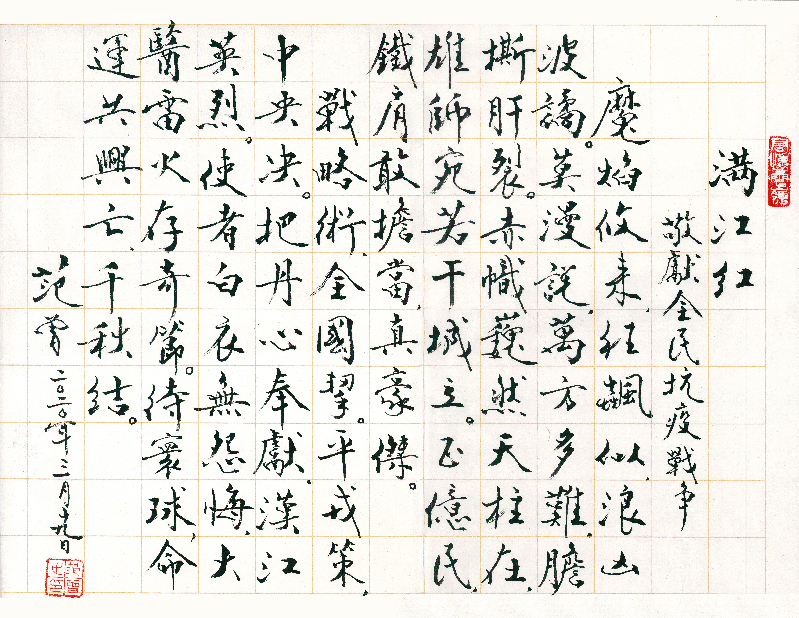 满江红
敬獻全民抗疫戰争
魔焰攸来,狂飆似,浪凶
波譎。莫漫説,萬方多難,膽
撕肝裂。赤幟巍然天柱在,
雄師宛若干城立。正億民,
鐵肩敢擔當,真豪傑。
戰略術,全國挈。平戎策,
中央决。把丹心奉獻,漢江
英烈。使者白衣無怨悔,大
醫雷火存奇節。待寰球,命
運共興亡,千秋結。
范曾 二〇二〇年三月十九日